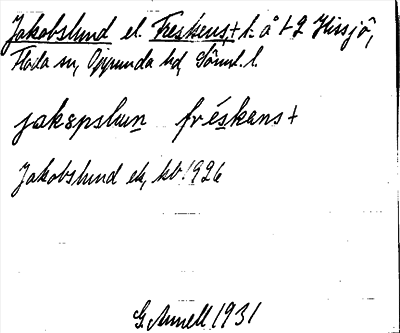 Jakobslund el. Freskens+ t. å t 2 Hissjö,
Floda sn, Oppunda hd, Söml. l.
jakɛpslun fréskans+
Jakobslund ek, kb. 1926
G. Annell 1931